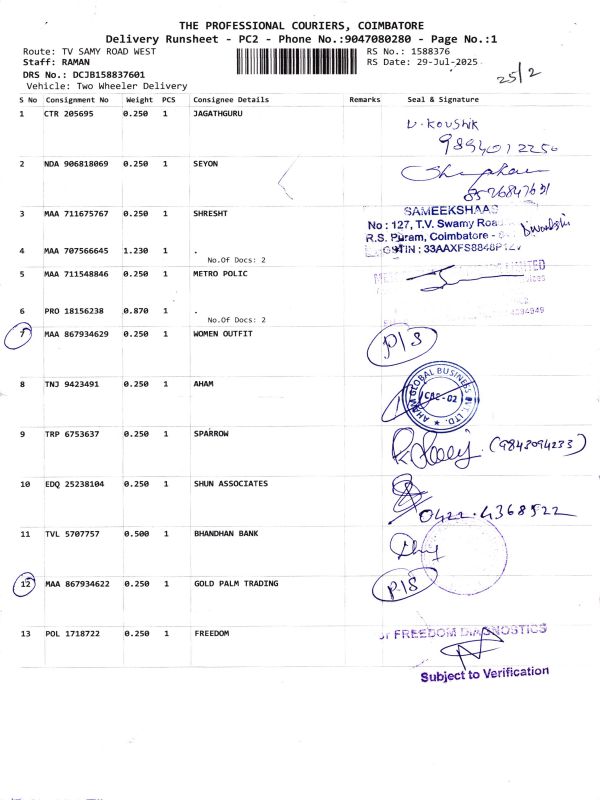 THE PROFESSIONAL COURIERS, COIMBATORE
Delivery Runsheet - PC2 - Phone No.:9047080280 - Page No.:1
Route: TV SAMY ROAD WEST
Staff: RAMAN
DRS No.: DCJB158837601
Vehicle: Two Wheeler Delivery
RS No.: 1588376
RS Date: 29-Jul-2025
25/2
S No Consignment No Weight PCS Consignee Details Remarks Seal & Signature
1 CTR 205695 0.250 1 JAGATHGURU
U-KOUSHIK
9894012250
2 NDA 906818069 0.250 1 SEYON
3 MAA 711675767 0.250 1 SHRESHT
SAMEEKSHAAS
No : 127, T.V. Swamy Road
R.S. Puram, Coimbatore -
GSTIN : 33AAXFS8848P1ZV
4 MAA 707566645 1.230 1 .
No.Of Docs: 2
5 MAA 711548846 0.250 1 METRO POLIC
6 PRO 18156238 0.870 1 .
No.Of Docs: 2
7 MAA 867934629 0.250 1 WOMEN OUTFIT P/S
8 TNJ 9423491 0.250 1 AHAM
AHAM GLOBAL BUSINESS PVT. LTD.
CBE-02
9 TRP 6753637 0.250 1 SPARROW
(9843094233)
10 EDQ 25238104 0.250 1 SHUN ASSOCIATES
0422-4368522
11 TVL 5707757 0.500 1 BHANDHAN BANK
12 MAA 867934622 0.250 1 GOLD PALM TRADING P/S
13 POL 1718722 0.250 1 FREEDOM
FREEDOM DIAGNOSTICS
Subject to Verification